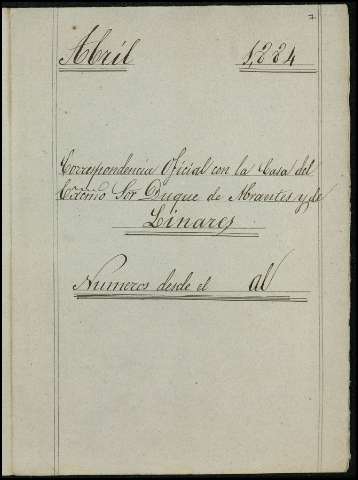 Abril 1,884
Correspondencia Oficial con la Casa del
Excmo Sor Duque de Abrantes y de
Linares
Numeros desde el al